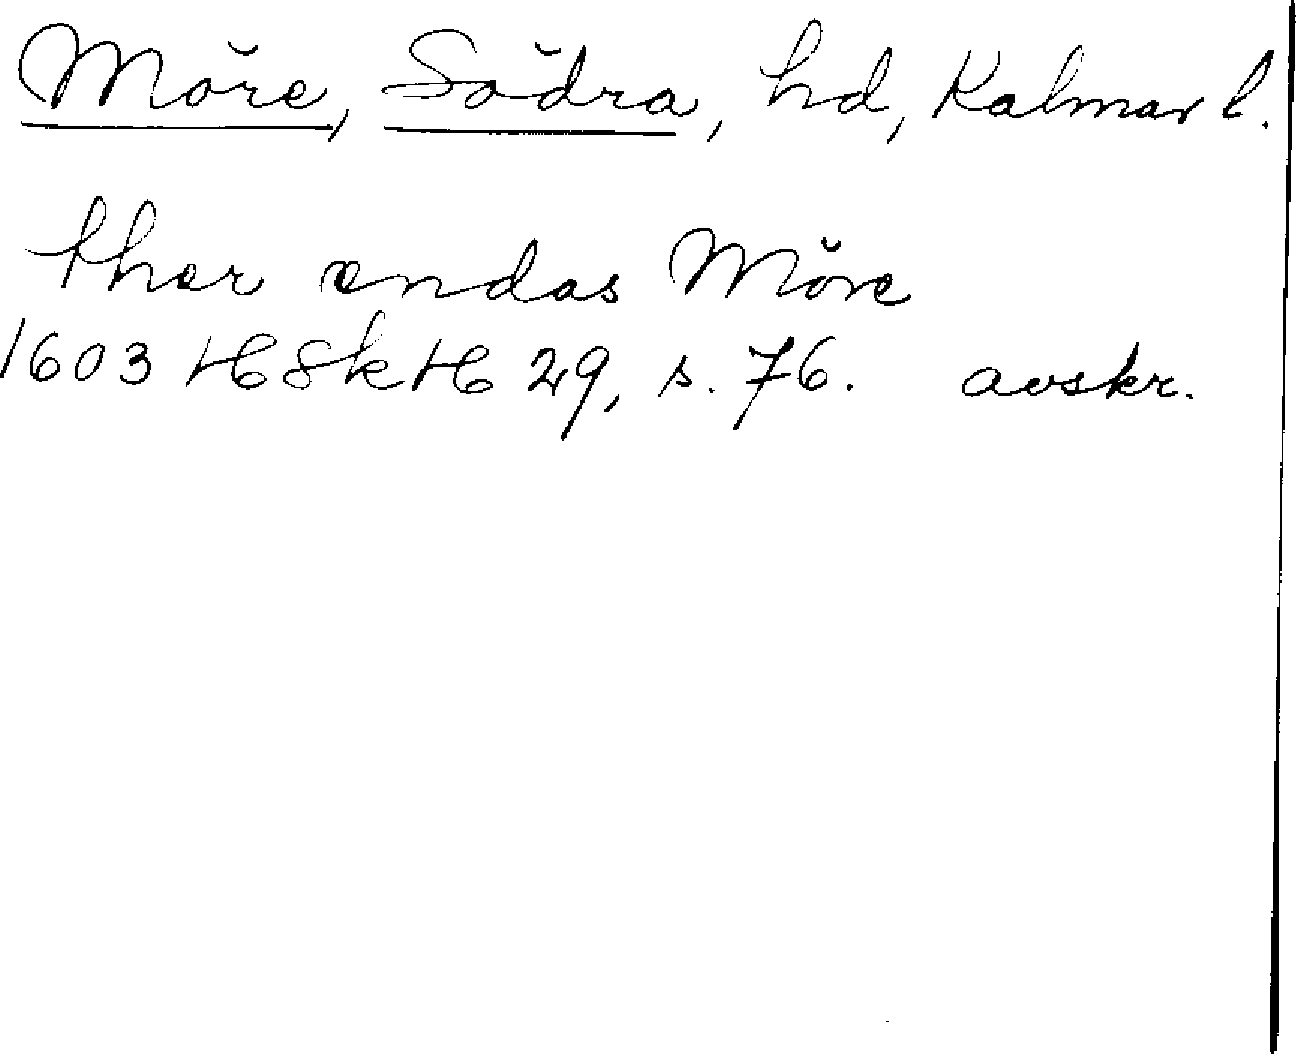 Möre, Södra, hd, Kalmar l.
ther endas Möre
1603 HSkH 29, s. 76. avskr.